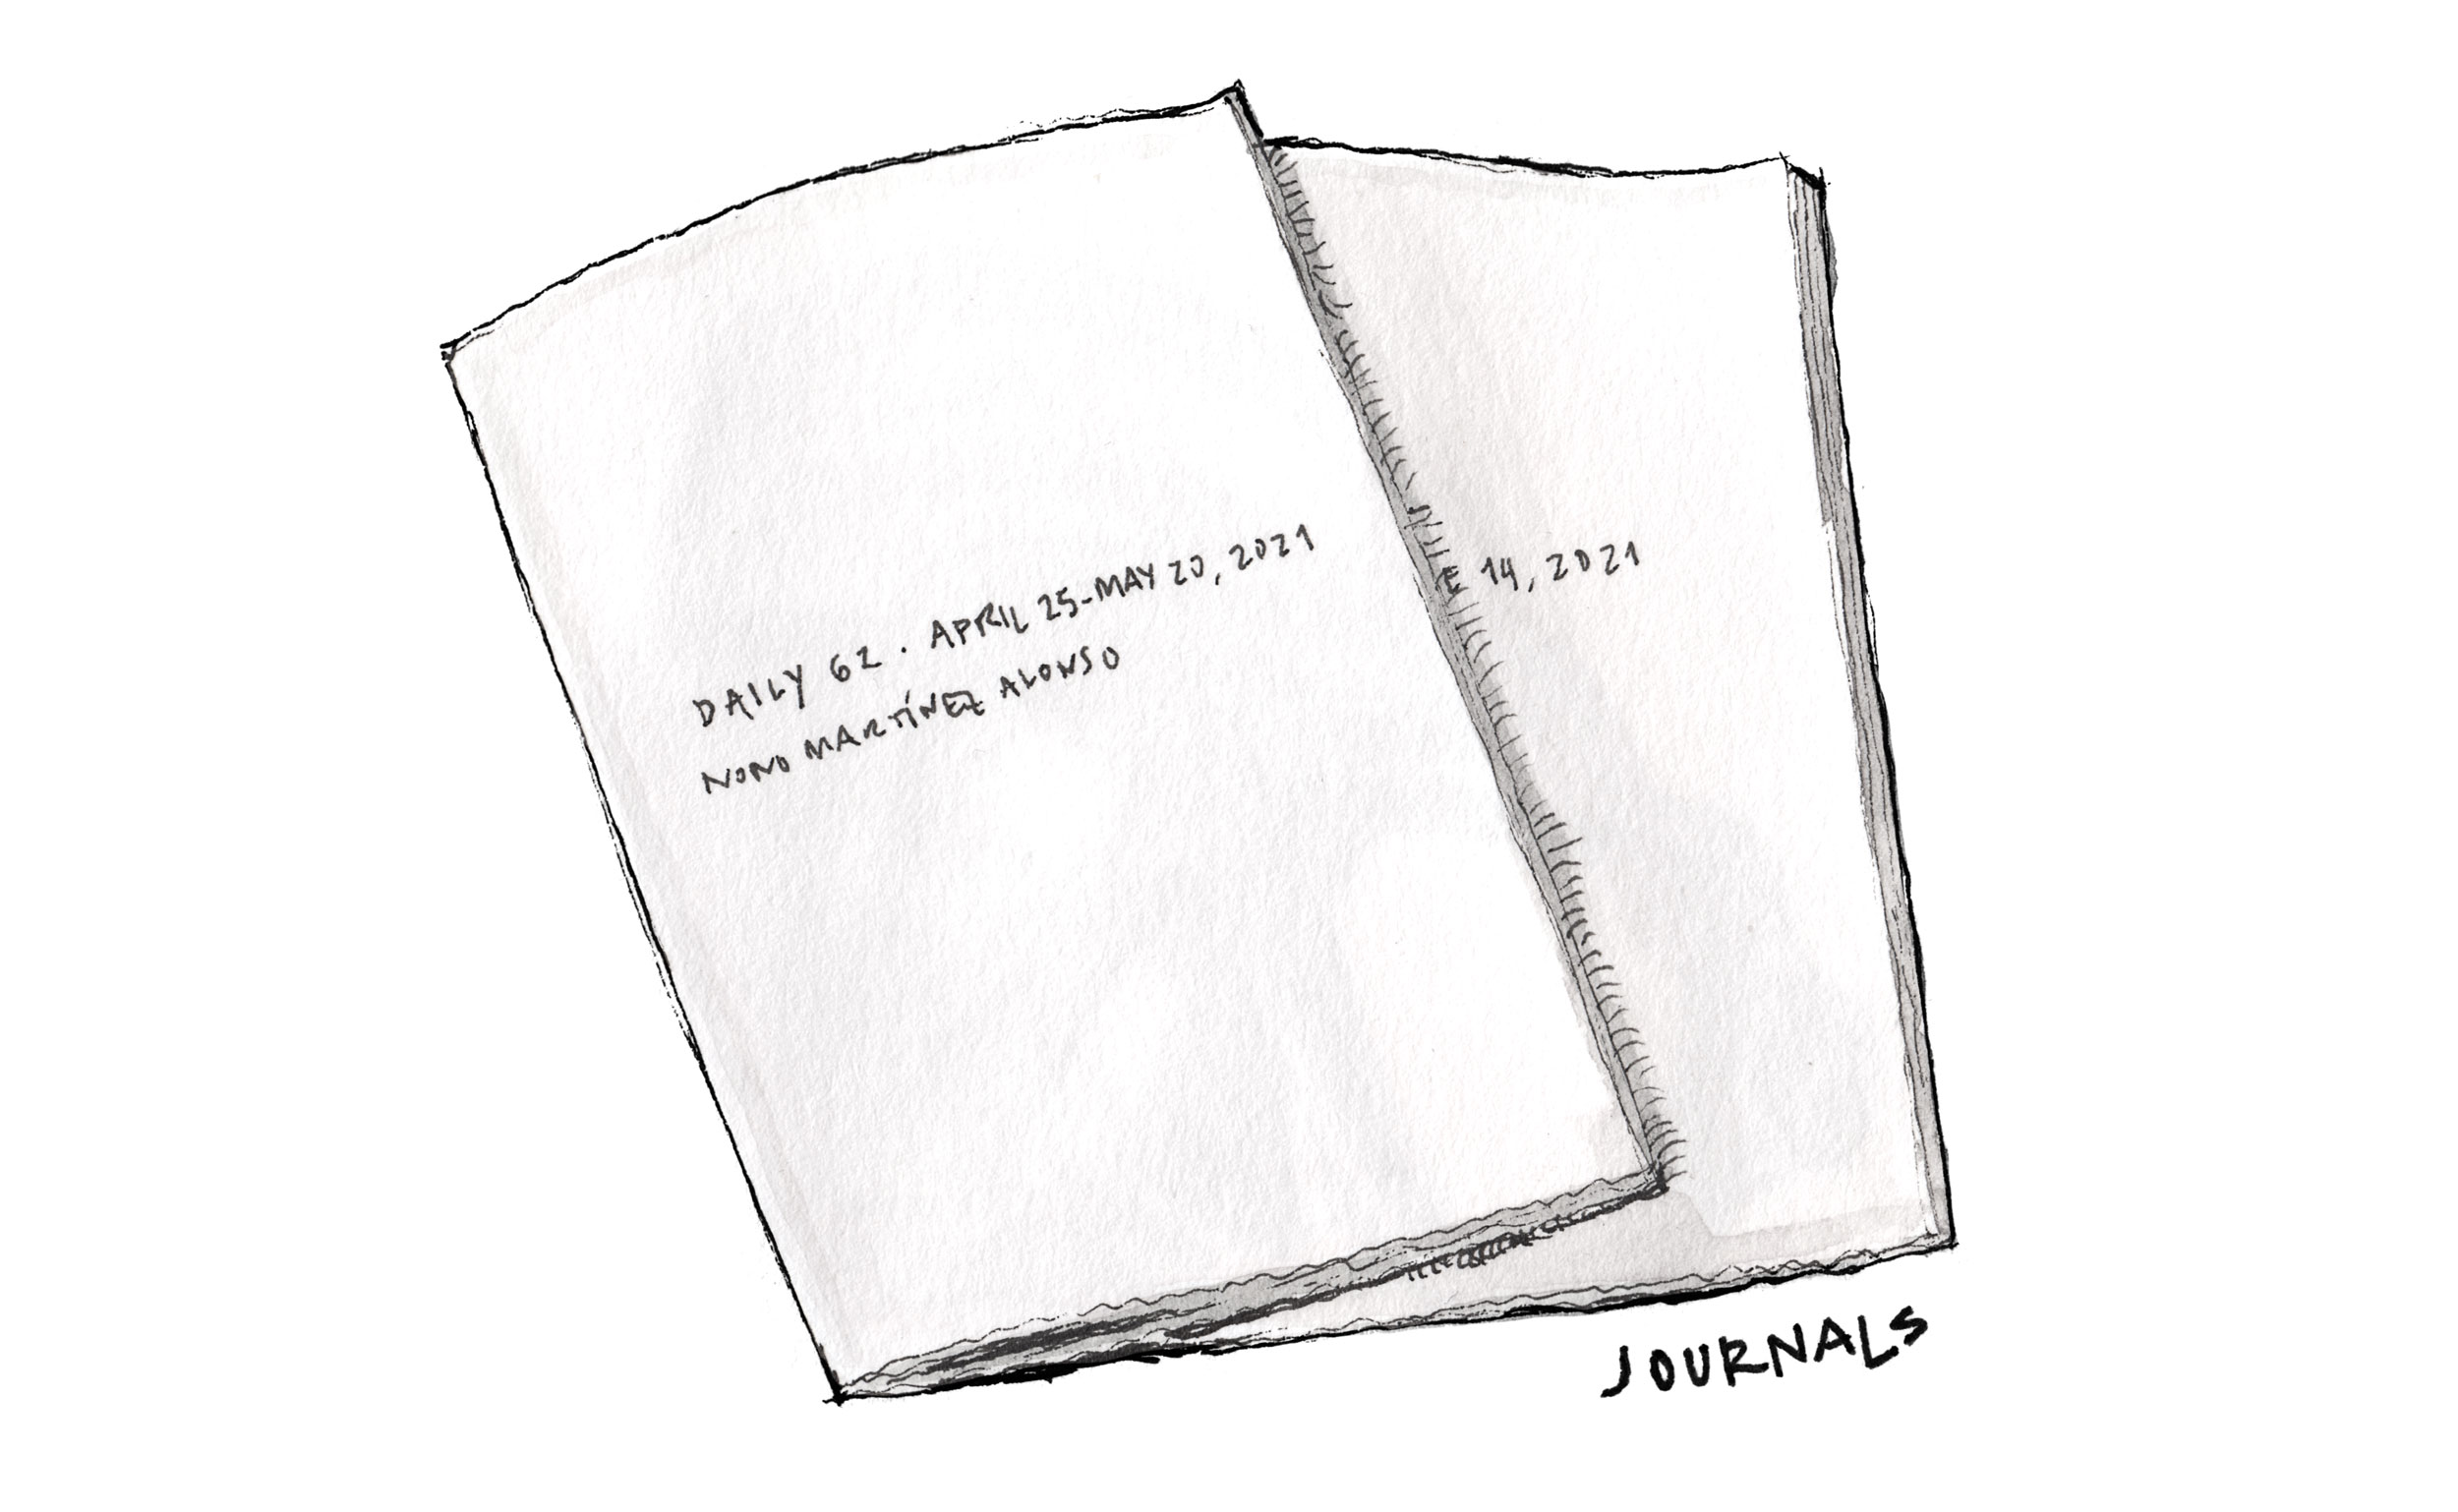 DAILY 62 . APRIL 25-MAY 20, 2021
NONO MARTÍNEZ ALONSO
E 14, 2021
JOURNALS